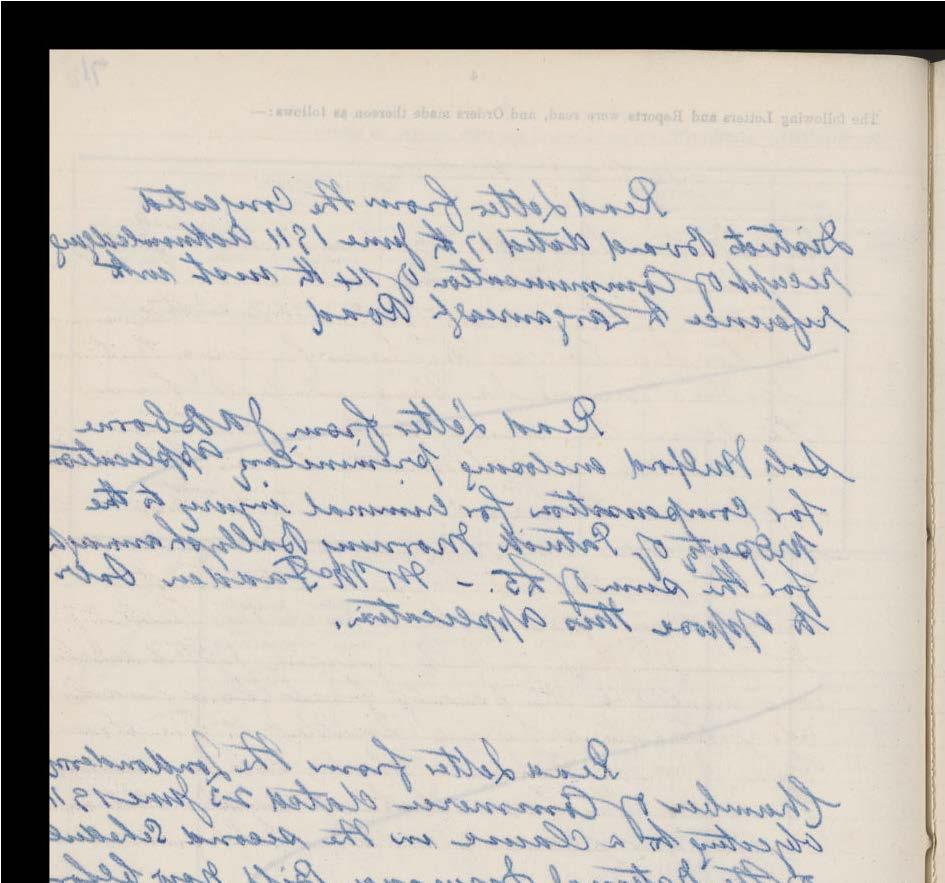 71
4
The following Letters and Reports were read, and Orders made thereon as follows:—
Read Letter from the Congested
District Board dated 17th June 1911 acknowledging
receipt of Communication of 14th inst with
reference to Largynagh Road
Read Letter from J Osborne
Sol. Milford enclosing preliminary application
for Compensation for Criminal injury to the
property of Patrick Morning
for the sum of £5. – Mr McFadden Solr
to oppose this application.
Read Letter from the Londonderry
Chamber of Commerce dated 23 June 1911
objecting to a Clause in the second Schedule
of the National Insurance Bill now